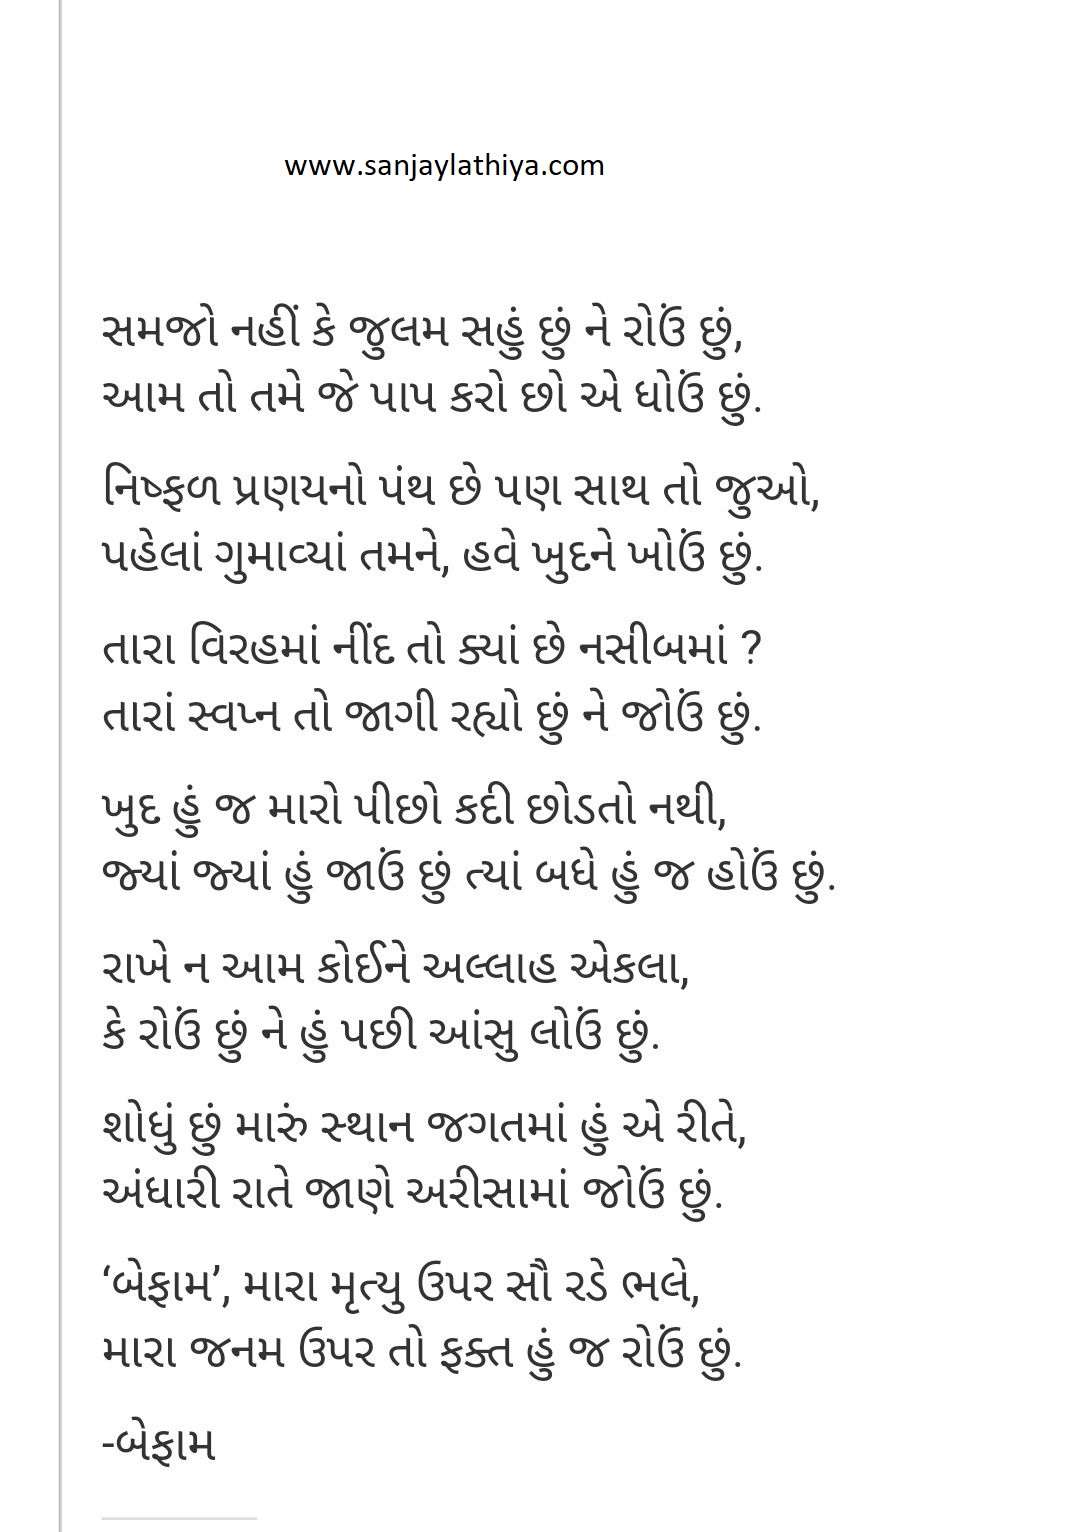 www.sanjaylathiya.com
સમજો નહીં કે જુલમ સહું છું ને રોઉં છું,
આમ તો તમે જે પાપ કરો છો એ ધોઉં છું.
નિષ્ફળ પ્રણયનો પંથ છે પણ સાથ તો જુઓ,
પહેલાં ગુમાવ્યાં તમને, હવે ખુદને ખોઉં છું.
તારા વિરહમાં નીંદ તો ક્યાં છે નસીબમાં ?
તારાં સ્વપ્ન તો જાગી રહ્યો છું ને જોઉં છું.
ખુદ હું જ મારો પીછો કદી છોડતો નથી,
જ્યાં જ્યાં હું જાઉં છું ત્યાં બધે હું જ હોઉં છું.
રાખે ન આમ કોઈને અલ્લાહ એકલા,
કે રોઉં છું ને હું પછી આંસુ લોઉં છું.
શોધું છું મારું સ્થાન જગતમાં હું એ રીતે,
અંધારી રાતે જાણે અરીસામાં જોઉં છું.
‘બેફામ’, મારા મૃત્યુ ઉપર સૌ રડે ભલે,
મારા જનમ ઉપર તો ફક્ત હું જ રોઉં છું.
-બેફામ